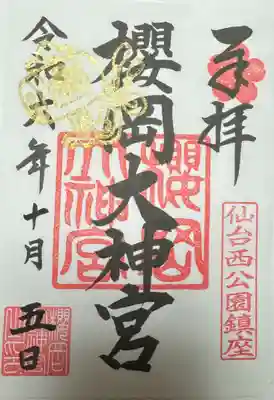 奉拝
仙台西公園鎮座
櫻岡大神宮
櫻岡大神宮
令和六年十月
五日